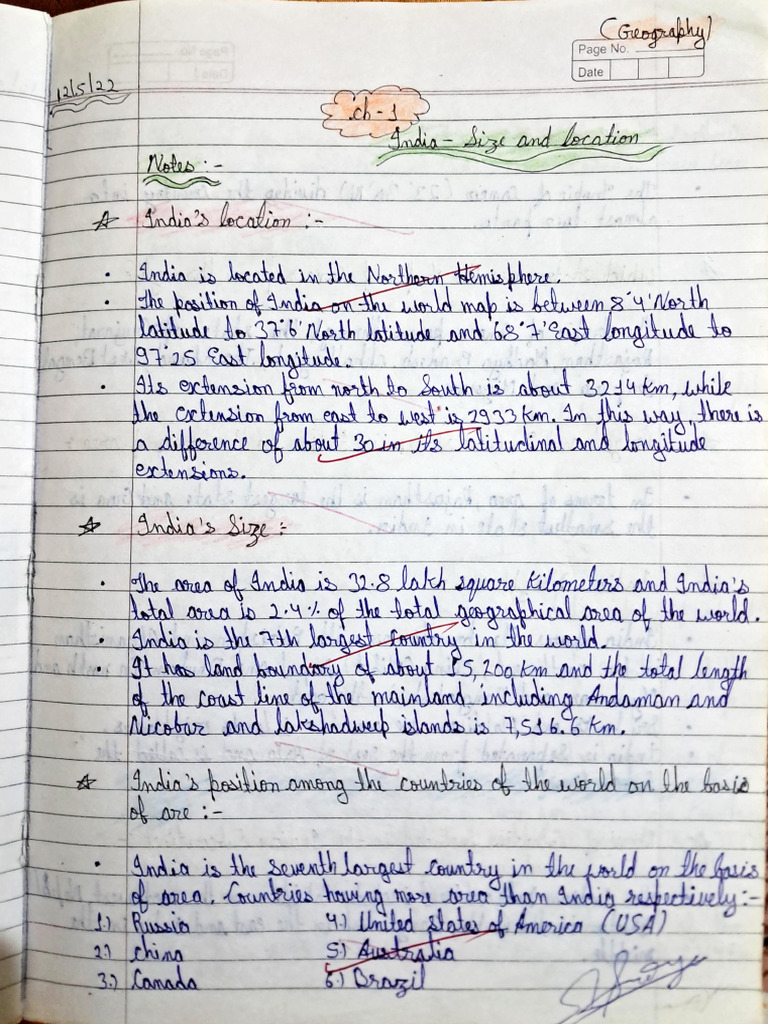 (Geography)
Page No.
Date
12/5/22
ch-1
India - Size and location
Notes :-
☆ India's location :-
• India is located in the Northern Hemisphere.
• The position of India on the world map is between 8°4' North
latitude to 37°6' North latitude and 68°7' East longitude to
97°25 East longitude.
• Its extension from north to South is about 3214 km, while
the extension from east to west is 2933 km. In this way, there is
a difference of about 30 in its latitudinal and longitude
extensions.
☆ India's Size :-
• The area of India is 32.8 lakh square Kilometers and India's
total area is 2.4% of the total geographical area of the world.
• India is the 7th largest country in the world.
• It has land boundary of about 15,200 km and the total length
of the coast line of the mainland including Andaman and
Nicobar and lakshadweep islands is 7,516.6 km.
☆ India's position among the countries of the world on the basis
of are :-
• India is the seventh largest country in the world on the basis
of area. Countries having more area than India respectively :-
1.) Russia 4.) United states of America (USA)
2.) china 5.) Australia
3.) Canada 6.) Brazil